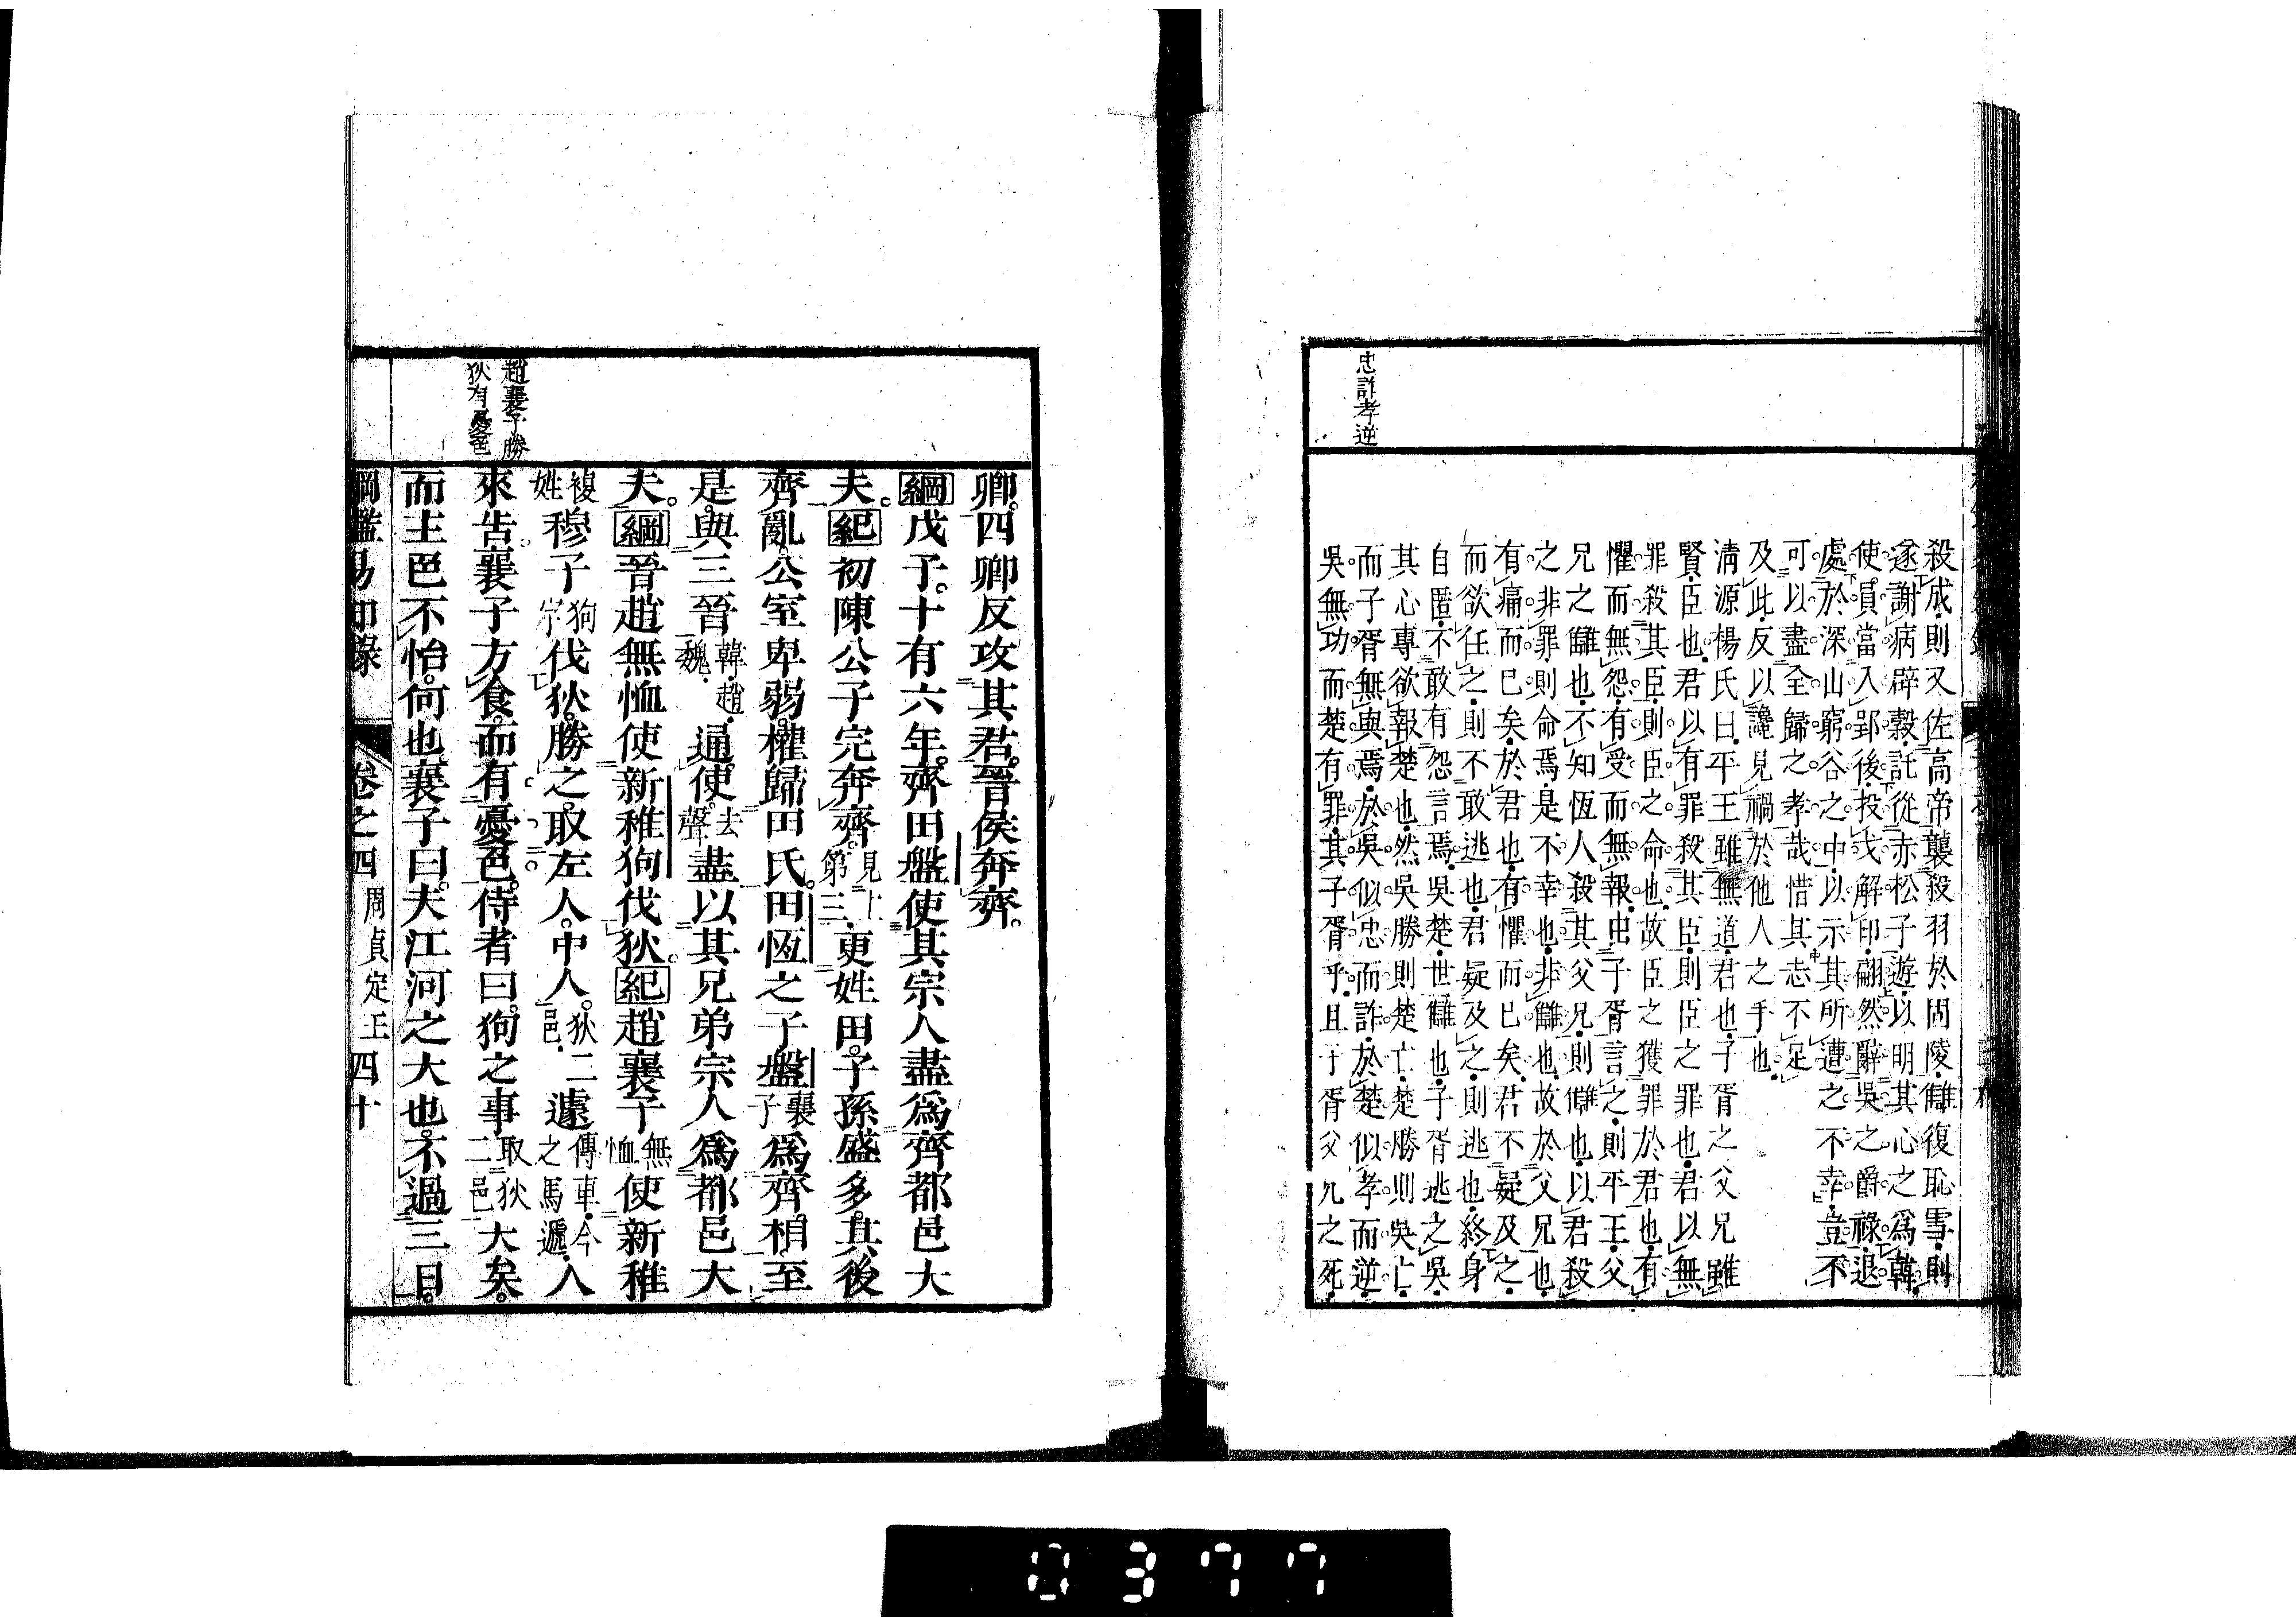 忠詐孝逆
殺成則又佐高帝襲殺羽於固陵讎復恥雪則
遂謝病辟穀託從赤松子遊以明其心之爲韓
使員當入郢後投戈解印翩然辭吳之爵祿退
處於深山窮谷之中以示其所遭之不幸豈不
可以盡全歸之孝哉惜其志不足
及此反以讒見禍於他人之手也
淸源楊氏曰平王雖無道君也子胥之父兄雖
賢臣也君以有罪殺其臣則臣之罪也君以無
罪殺其臣則臣之命也故臣之獲罪於君也有
懼而無怨有受而無報由子胥言之則平王父
兄之讎也不知恆人殺其父兄則讎也以君殺
之非罪則命焉是不幸也非讎也故於父兄也
有痛而已矣於君也有懼而已矣君不疑及之
而欲任之則不敢逃也君疑及之則逃也終身
自匿不敢有怨言焉吳楚世讎也子胥逃之吳
其心專欲報楚也然吳勝則楚亡楚勝則吳亡
而子胥無與焉於吳似忠而詐於楚似孝而逆
吳無功而楚有罪其子胥乎且子胥父兄之死
趙襄子勝
狄有憂色
卿四卿反攻其君晉侯奔齊
綱戊子十有六年齊田盤使其宗人盡爲齊都邑大
夫紀初陳公子完奔齊見十第三更姓田子孫盛多其後
齊亂公室卑弱權歸田氏田恆之子盤襄子爲齊相至
是與三晉韓趙魏通使去聲盡以其兄弟宗人爲都邑大
夫綱晉趙無恤使新稚狗伐狄紀趙襄子無恤使新稚
複姓穆子狗字伐狄勝之取左人中人狄二邑遽傳車今之馬遞入
來告襄子方食而有憂色侍者曰狗之事取狄二邑大矣
而主色不怡何也襄子曰夫江河之大也不過三日
綱鑑易知錄 卷之四 周貞定王 四十
0377